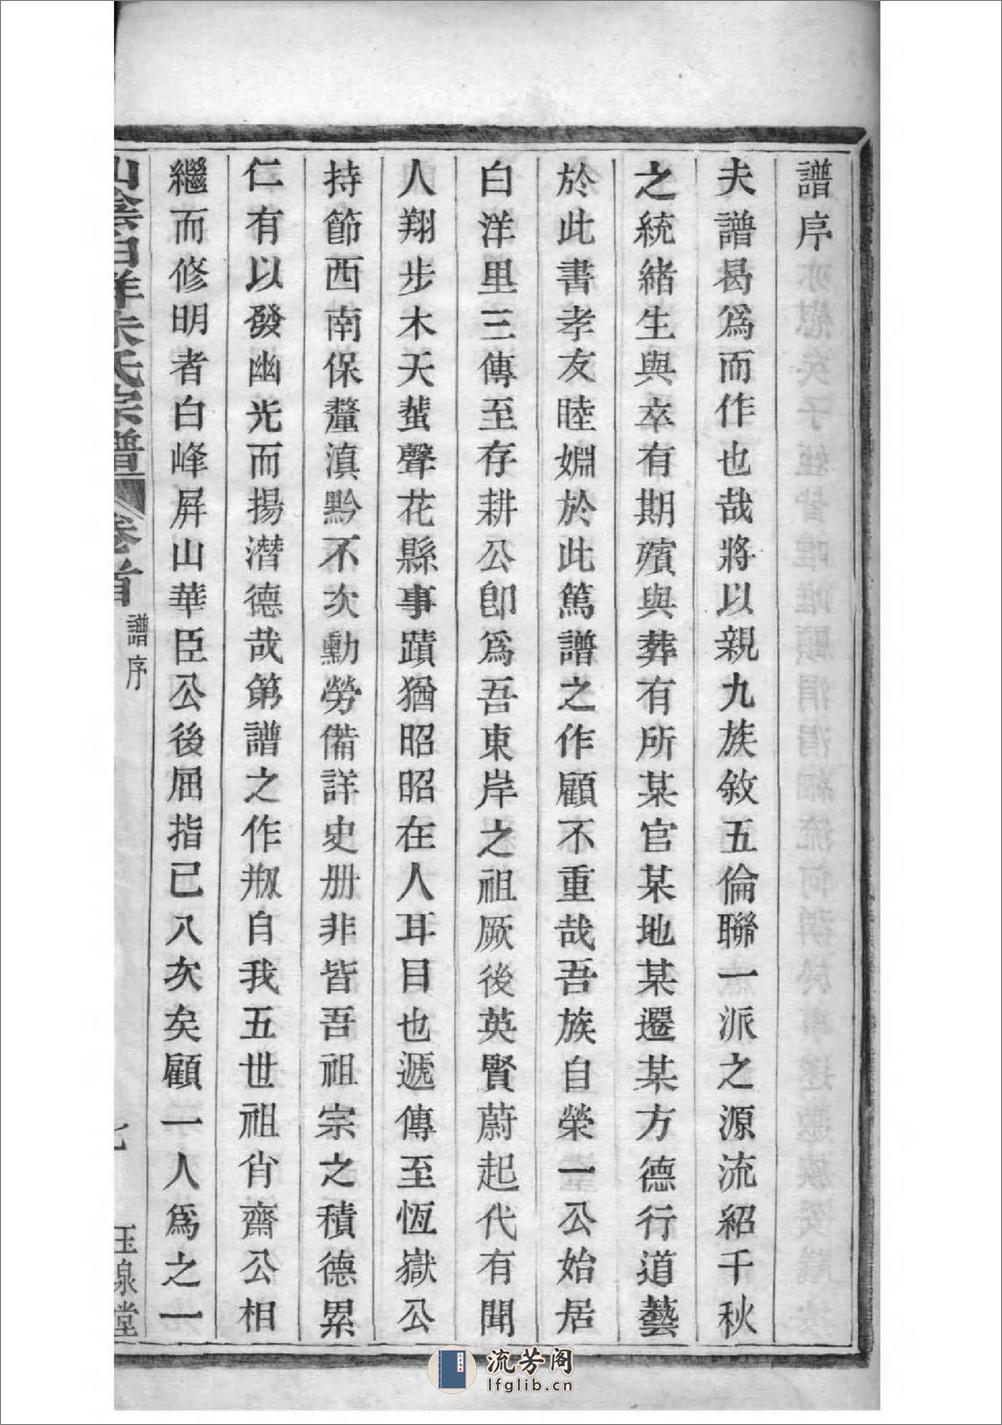 譜序
夫譜曷爲而作也哉將以親九族敘五倫聯一派之源流紹千秋
之統緒生與卒有期殯與葬有所某官某地某遷某方德行道藝
於此書孝友睦婣於此篤譜之作顧不重哉吾族自榮一公始居
白洋里三傳至存耕公卽爲吾東岸之祖厥後英賢蔚起代有聞
人翔步木天蜚聲花縣事蹟猶昭昭在人耳目也遞傳至恆嶽公
持節西南保釐滇黔不次勳勞備詳史册非皆吾祖宗之積德累
仁有以發幽光而揚潛德哉第譜之作剏自我五世祖肖齋公相
繼而修明者白峰屏山華臣公後屈指已八次矣顧一人爲之一
山陰白洋朱氏宗譜 卷首 譜序 七 玉泉堂
流芳阁
lfglib.cn